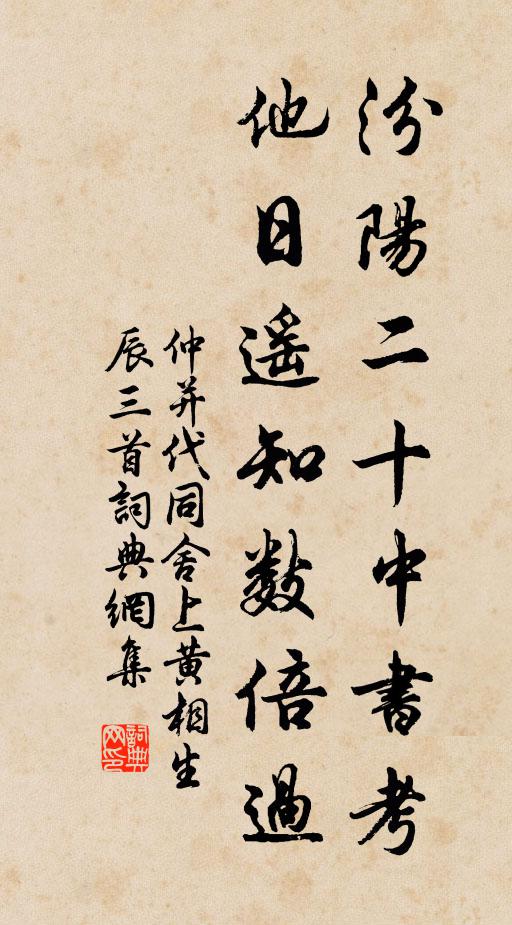 汾陽二十中書考
他日遥知数倍過
仲并代同舍上黄相生
辰三首詞典網集
詞典网印